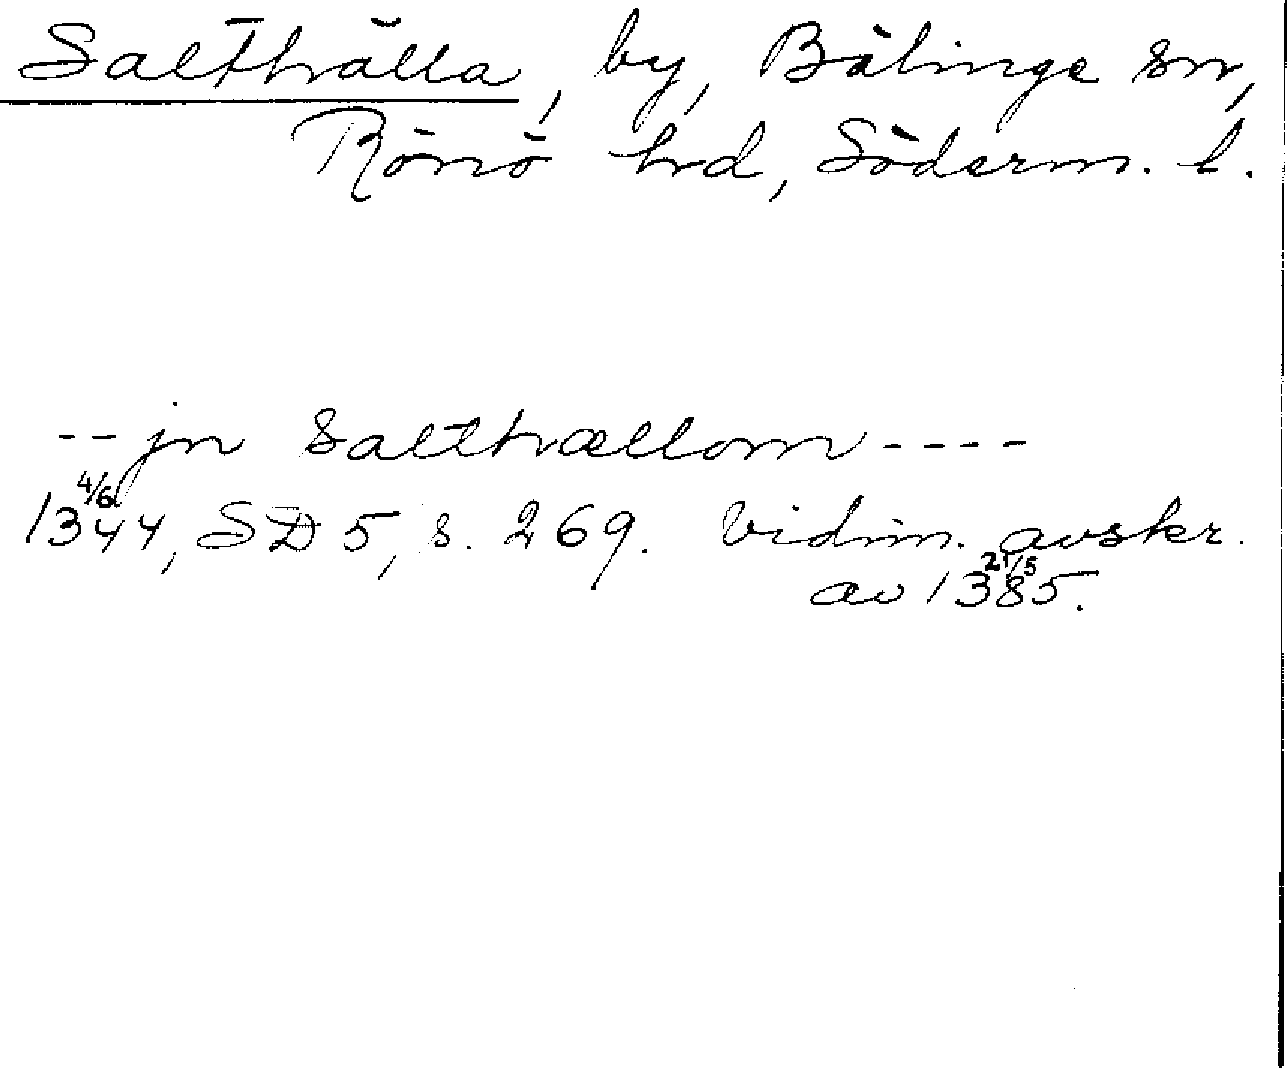 Salthälla, by, Bälinge sn,
Rönö hrd, Söderm. l.
-- jn Salthællom ----
1344 4/6, SD 5, s. 269. Vidim. avskr.
av 1385 21/5.